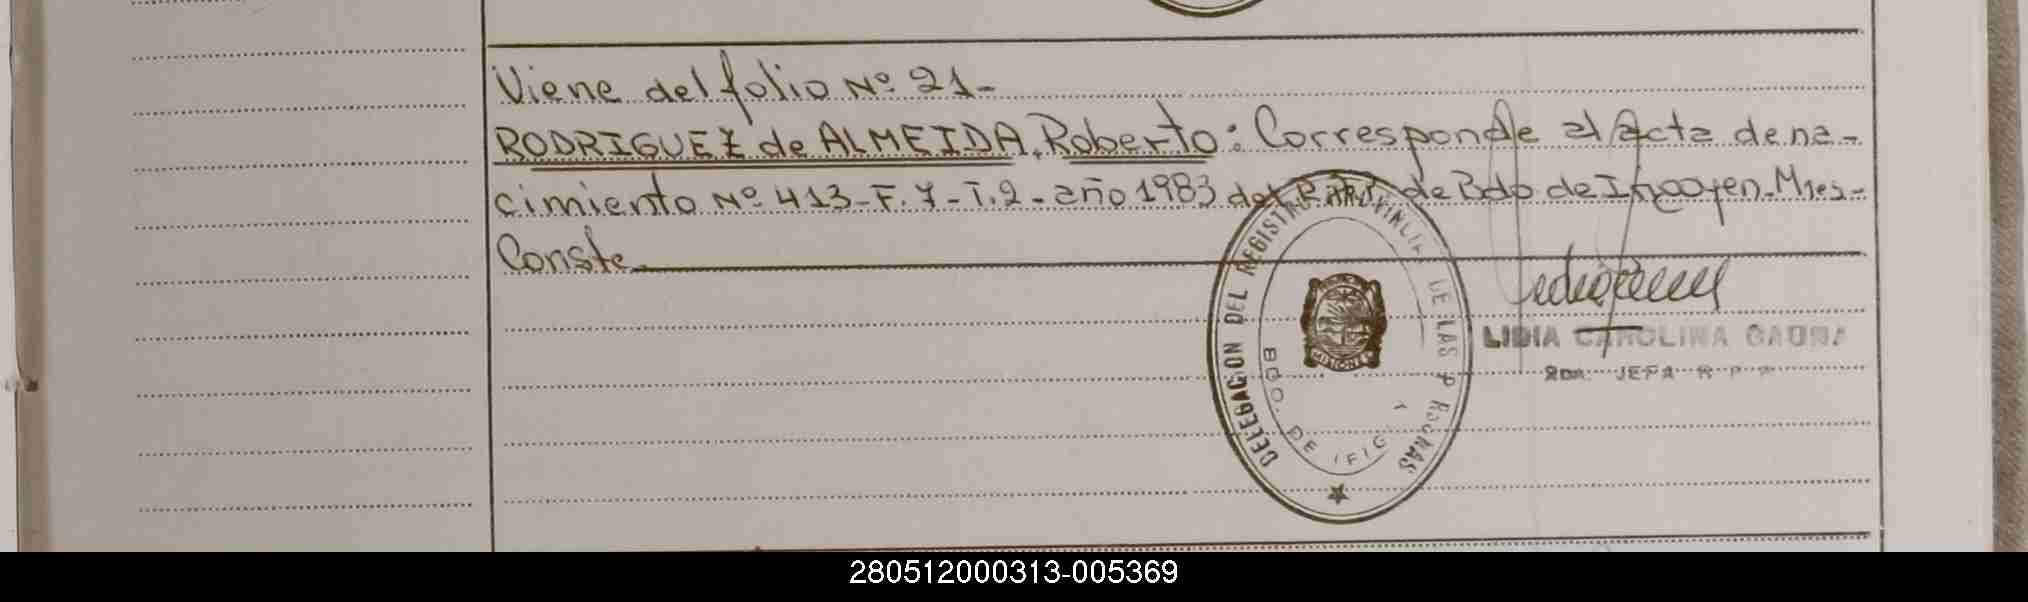 Viene del folio Nº 21-
RODRIGUEZ de ALMEIDA, Roberto: Corresponde al Acta de na-
cimiento Nº 413-F.7-T.2- año 1983 del de Bdo de Irigoyen-Mnes-
Conste
DELEGACION DEL REGISTRO PROVINCIAL DE LAS PERSONAS
BDO. DE
MISIONES
LIDIA CAROLINA GAUNA
2DA. JEFA R P P
280512000313-005369